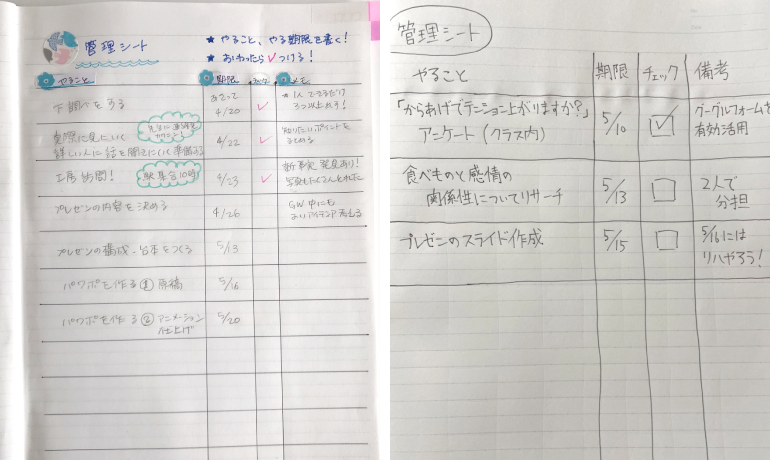 管理シート
★やること、やる期限を書く!
★おわったら✓つける!
やること
期限
メモ
下調べをする
4/20
✓
★1人でできるだけ
3つ以上ある!
実際に見にいく
詳しい人に話を聞きにいく準備する
4/22
✓
知りたいポイントを
まとめる
工房訪問!
駅集合10時
4/23
✓
新事実発見あり!
写真もたくさんとれた
プレゼンの内容を決める
4/26
GW中にも
アイデア考える
プレゼンの構成・台本をつくる
5/13
パワポを作る① 原稿
5/16
パワポを作る② アニメーション
仕上げ
5/20
管理シート
やること
期限
チェック
備考
「からあげでテンション上がりますか?」
アンケート(クラス内)
5/10
グーグルフォームを
有効活用
食べものと感情の
関係性についてリサーチ
5/13
2人で
分担
プレゼンのスライド作成
5/15
5/16には
リハやろう!